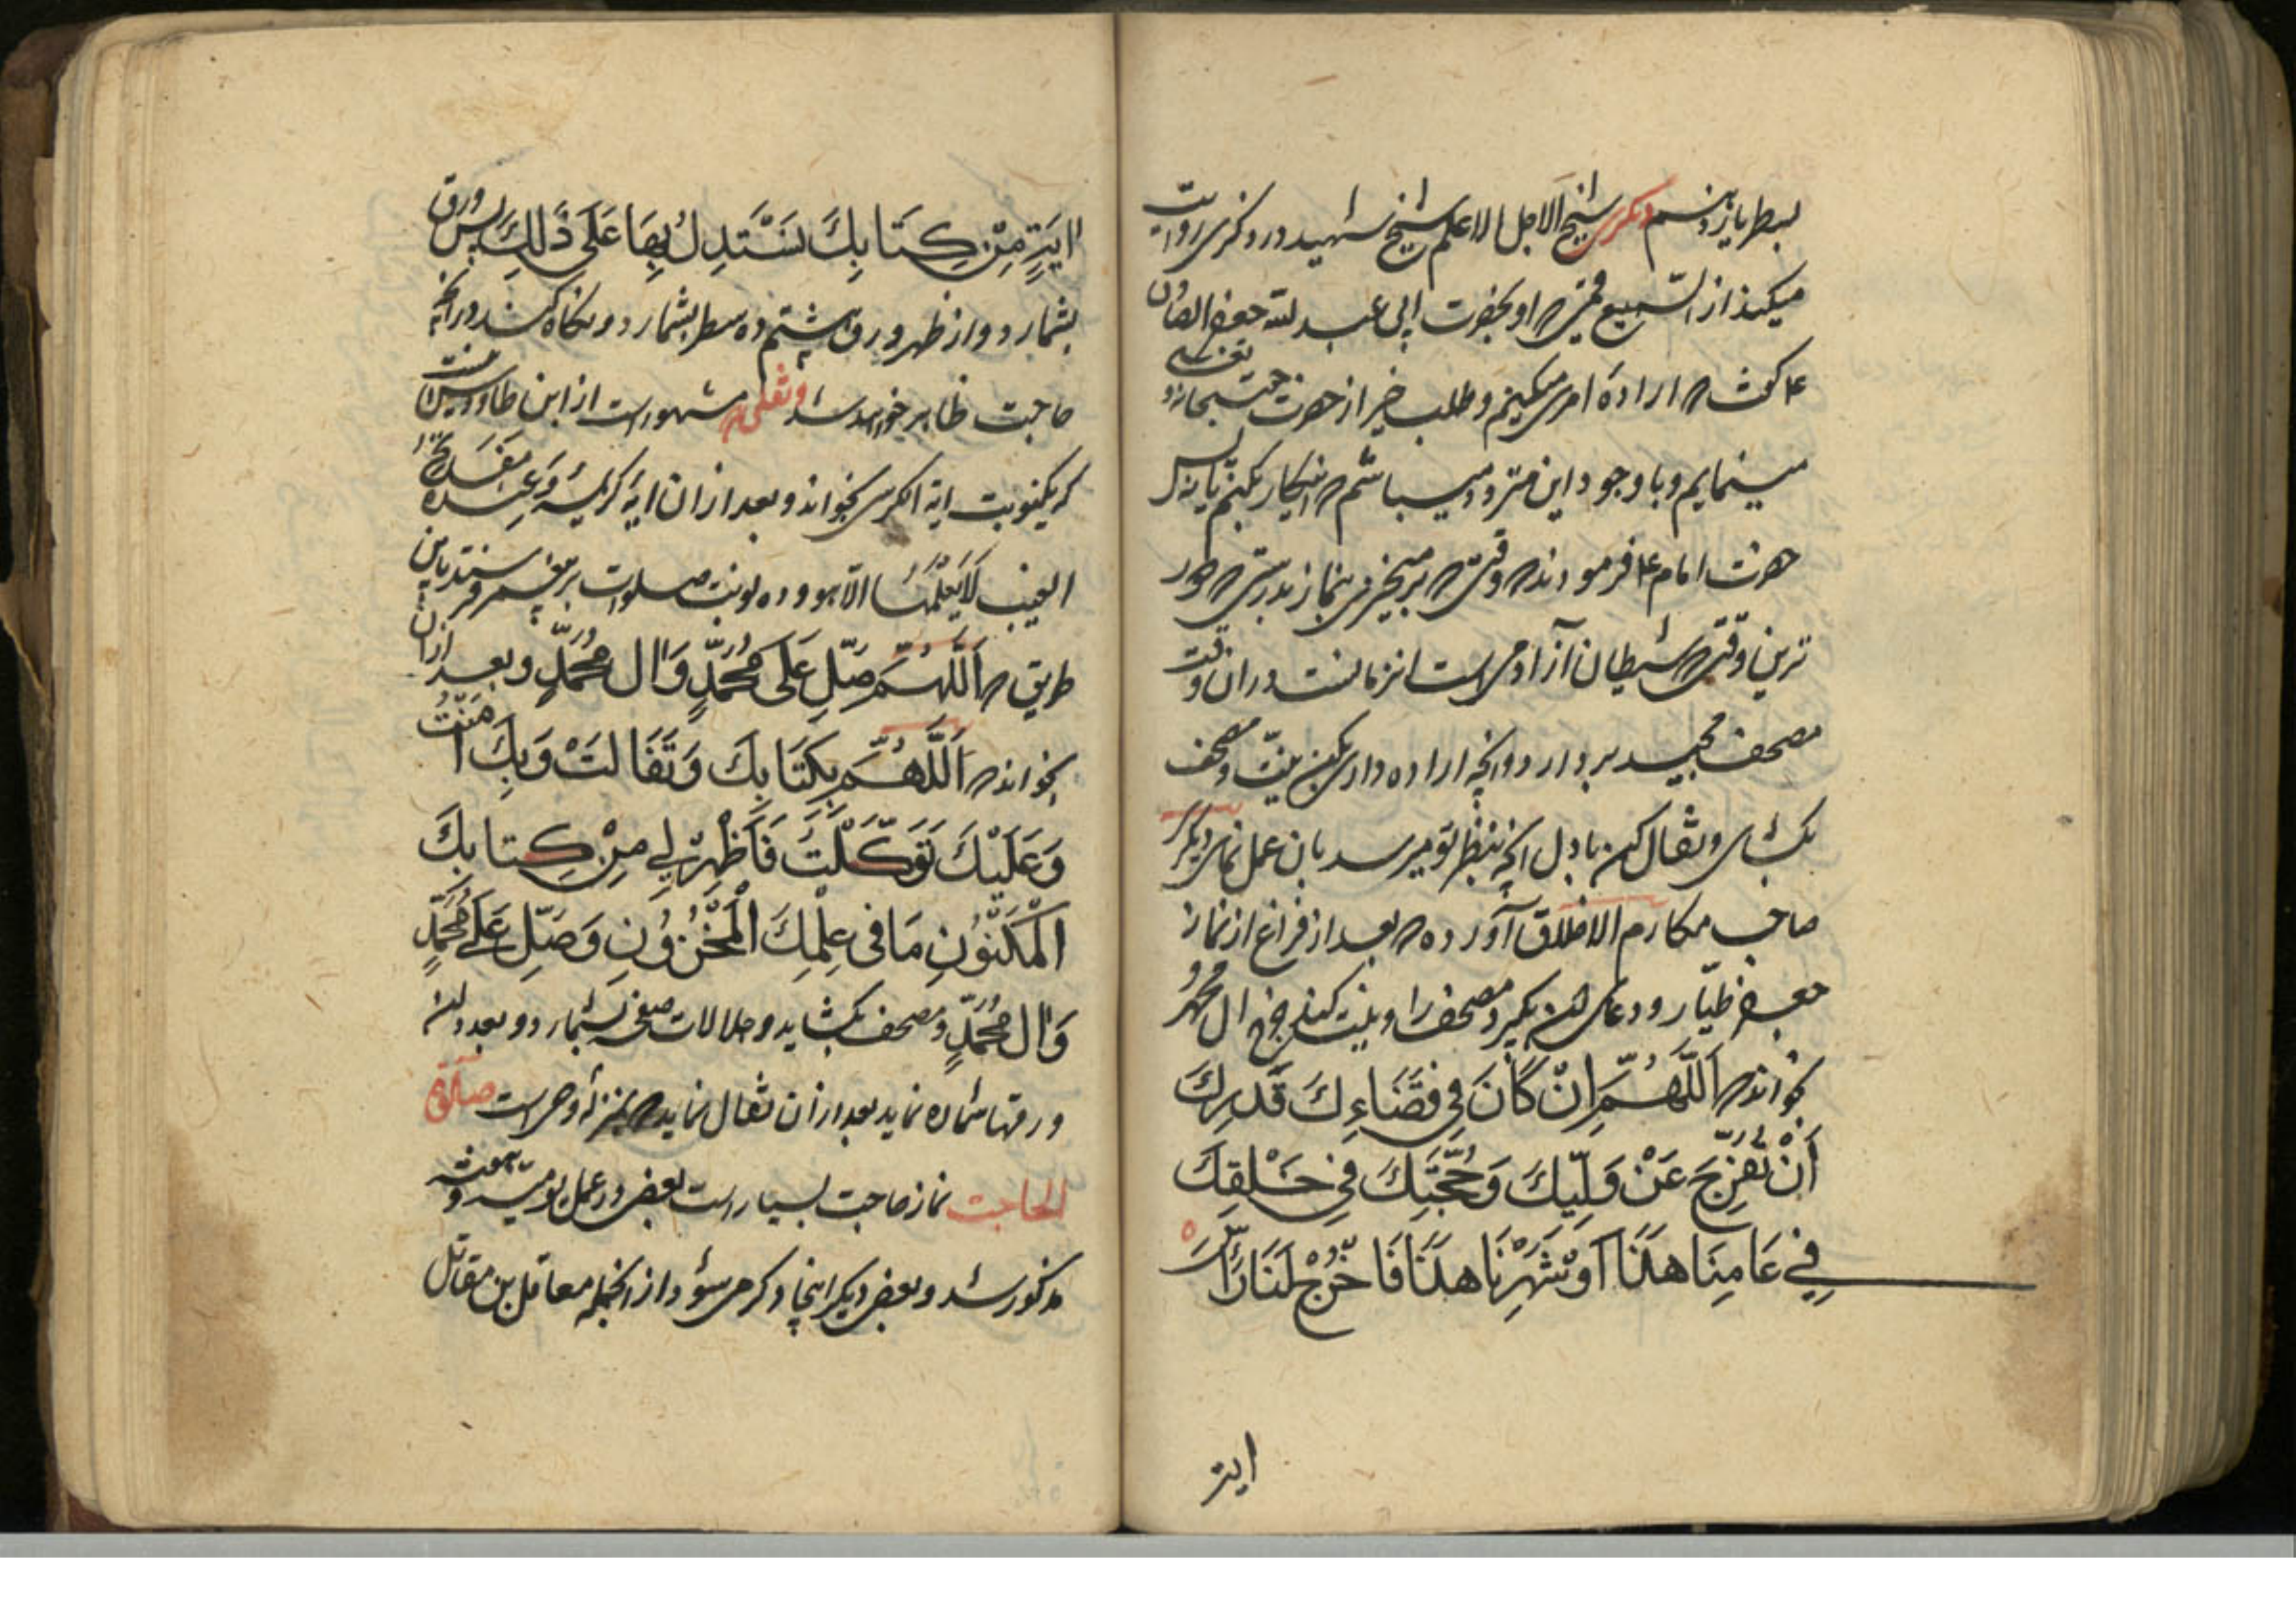 بسطر یازدهم دیگری شیخ الاجل الاعلم شیخ شهید در ذکری روایت
میکند از الیسع قمی که او بحضرت ابی عبد الله جعفر الصادق
ع گفت که اراده امری میکنم و طلب خیر از حضرت حق سبحانه و تعالی
مینمایم و با وجود این متردد میباشم که اینکار بکنم یا نه پس
حضرت امام ع فرمودند که وقتی که برمیخیزی بنماز بدرستی که دور
ترین اوقتی که شیطان از آدمی است انزمانست در ان وقت
مصحف مجید بردار و انچه اراده داری بکن نیت و مصحف
بکشای و تفال کن باول انچه بنظر تو میرسد بان عمل نمای دیگر
صاحب مکارم الاخلاق آورده که بعد از فراغ از نماز
جعفر طیار و دعای ان بکیرد مصحف را و نیت کند فرج ال محمد و
بخواند که اَللّٰهُمَّ اِنْ كَانَ فِي قَضَاءِكَ قَدَرِكَ
أَنْ تُفَرِّجَ عَنْ وَلِيِّكَ وَحُجَّتِكَ فِي خَلْقِكَ
فِي عَامِنَا هٰذَا اَوْ شَهْرِنَا هٰذَا فَاَخْرِجْ لَنَا رَأْسَ
ایتر
ايَةٍ مِنْ كِتَابِكَ نَسْتَدِلُ بِهَا عَلَى ذٰلِكَ پس ورق
بشمارد و از ظهر ورق هشتم ده سطر بشمارد و نکاه کند در انچه
حاجت ظاهر خواهد شد و تفلی که مشهور است از ابن طاووس انست
که یکنوبت ایة الکرسی بخواند و بعد از ان ایه کریمه وَعِنْدَهُ مَفَاتِحُ
الغیب لَا يَعْلَمُهَا الّا هو و ده نوبت صلوات بر پیغمبر فرستد باین
طریق که اَللّٰهُمَّ صَلِّ عَلَى مُحَمَّدٍ وَال مُحَمَّدٍ و بعد از ان
بخواند که اَللّٰهُمَّ بِكِتَابِكَ وَتَفَالتُ وَبِكَ امَنْتُ
وَعَلَيْكَ تَوَكَّلْتُ فَاَظْهِرْ لِي مِنْ كِتابِكَ
الْمَكْنُوْنِ مَا فِي عِلْمِكَ الْمَخْزُوْنِ وَصَلِّ عَلَى مُحَمَّدٍ
وَال مُحَمَّدٍ و مصحف بکشاید و جلالات صفحه بشمارد و بعدد ان
ورقها شماره نماید بعد از ان تفال نماید که بمنزله وحی است صلوة
الحاجت نماز حاجت بسیار است بعضی در عمل یومیه و هفته
مذکور شد و بعضی دیگر اینجا ذکر می شود از انجمله معاقل بن مقاتل